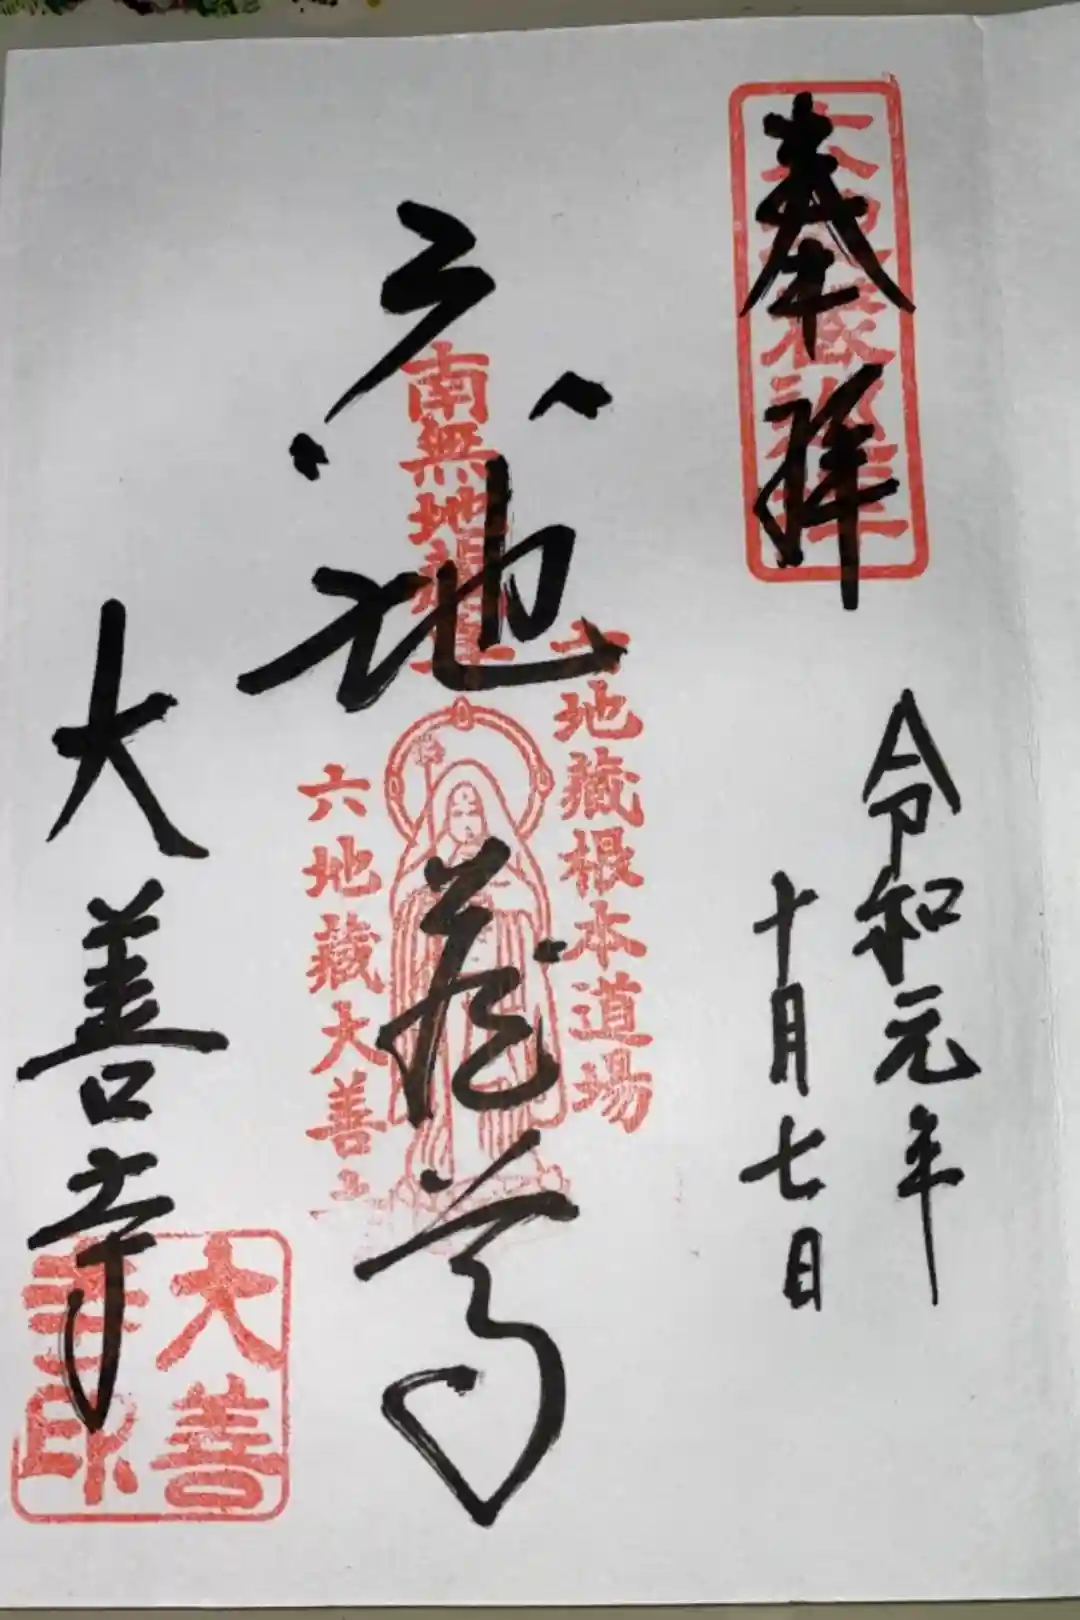 奉拝
令和元年
十月七日
六地蔵尊
南無地蔵尊
六地蔵根本道場
六地藏大善寺
大善寺
大善寺印